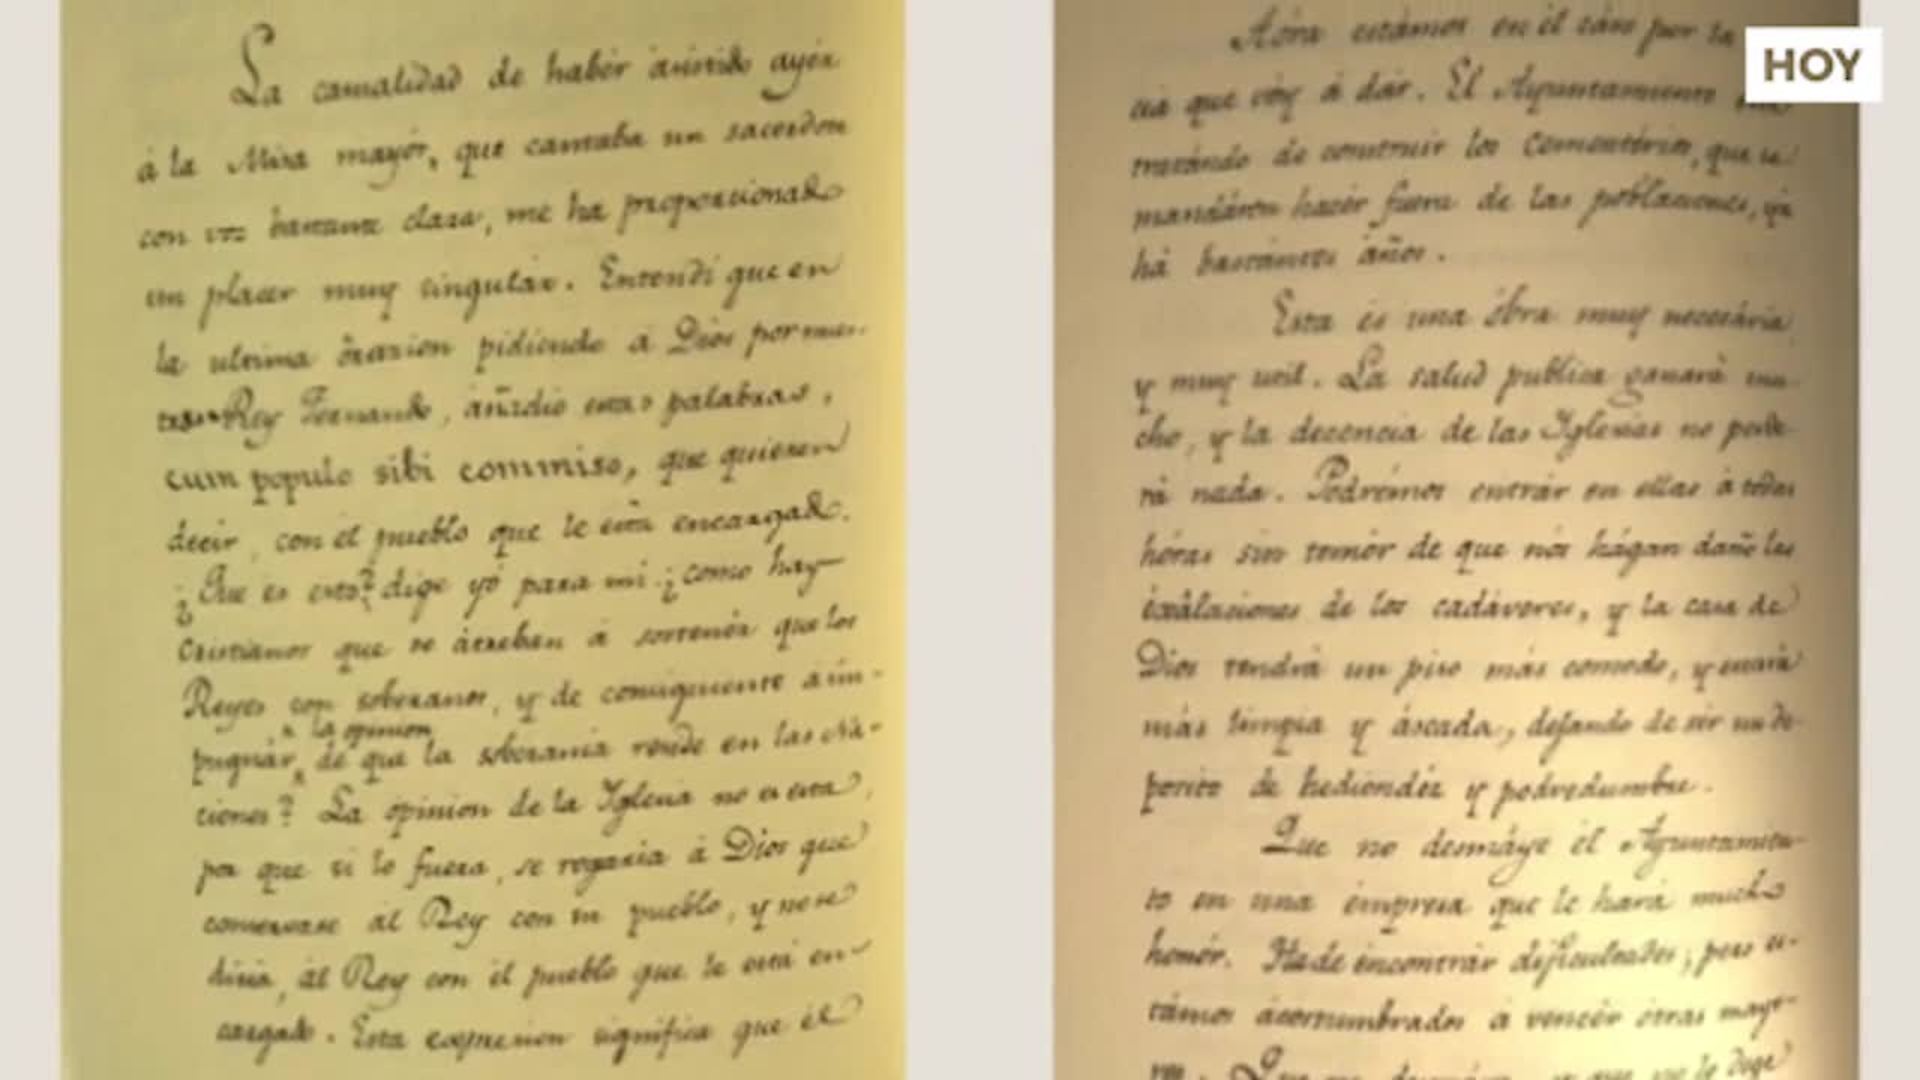 La casualidad de habér asistido ayér
á la Misa mayór, que cantaba un sacerdote
con voz bastante clara, me ha proporcionado
un placer muy singular. Entendí que en
la ultima órazion pidiendo á Dios por nues-
tro Rey Fernando, añadió estas palabras,
cum populo sibi commisso, que quieren
decir, con él pueblo que le está encargado.
¿Que es esto? dige yó para mi: ¿como hay
Cristianos que se átreban á sostenér que los
Reyes son soberanos, y de consiguiente á im-
la opinion
pugnár, de que la soberania reside en las Na-
ciones? La opinion de la Iglesia no es esta,
por que si lo fuera, se rogaria á Dios que
conservase ál Rey con su pueblo, y no se
diria, ál Rey con él pueblo que le está en-
cargado. Esta expresion significa que él
HOY
Aóra estámos en él cáso por la
cia que vóy á dár. El Ayuntamiento
tratándo de construir los Cementérios, que se
mandáron hacér fuera de las poblaciones, yá
há bastántes años.
Esta és una óbra muy necesária,
y muy util. La salud publica ganará mu-
cho, y la decencia de las Iglesias no perde-
rá nada. Podrémos entrár en ellas á todas
hóras sin temór de que nos hágan daño las
éxálaciones de los cadáveres, y la casa de
Dios tendrá un piso más comodo, y estará
más limpia y áseada, dejando de sér un de-
posito de hediondéz y podredumbre.
Que no desmáye él Ayuntamien-
to en una émpresa que le hará mucho
honór. Ha de éncontrár dificultades; pero es-
támos ácostumbrados á vencér ótras mayo-